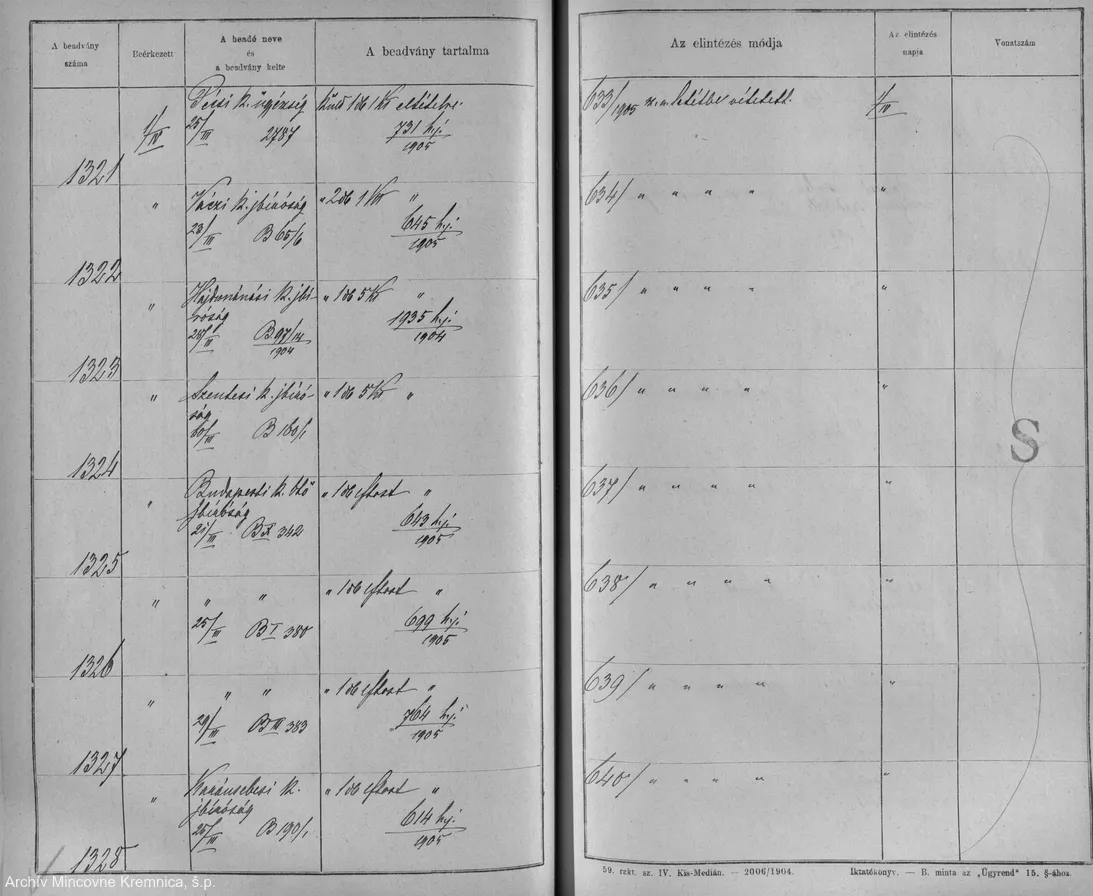 A beadvány száma
Beérkezett
A beadó neve és a beadvány kelte
A beadvány tartalma
Az elintézés módja
Az elintézés napja
Vonatszám
Pécsi k. ügyészség
küld 1 db 1 Kr eltételre.
1/IV
25/III 2787
731 hj. / 1905
633/1905 sz. a. letétbe vétetett.
1/IV
1321
" Váczi k. jbíróság
" 2 db 1 Kr "
28/III B 65/6
645 hj. / 1905
634/ " " " " "
1322
" Hajdunánási k. jbí-
róság
" 1 db 5 Kr "
28/III B 97/14 / 1904
1935 hj. / 1904
635/ " " " " "
1323
" Szentesi k. jbíró-
ság
" 1 db 5 Kr "
/III B 160/1
636/ " " " " "
1324
" Budapesti k. btő
jbíróság
" 1 db eftost "
21/III B X 342
643 hj. / 1905
637/ " " " " "
1325
" " "
" 1 db eftost "
25/III B I 380
699 hj. / 1905
638/ " " " " "
1326
" " "
" 1 db eftost "
29/III B III 383
764 hj. / 1905
639/ " " " " "
1327
" Karánsebesi k.
jbíróság
" 1 db eftost "
25/III B 190/1
614 hj. / 1905
640/ " " " " "
1328
S
59. rzkt. sz. IV. Kis-Medián. — 2006/1904.
Iktatókönyv. — B. minta az „Ügyrend" 15. §-ához.
Archív Mincovne Kremnica, š.p.